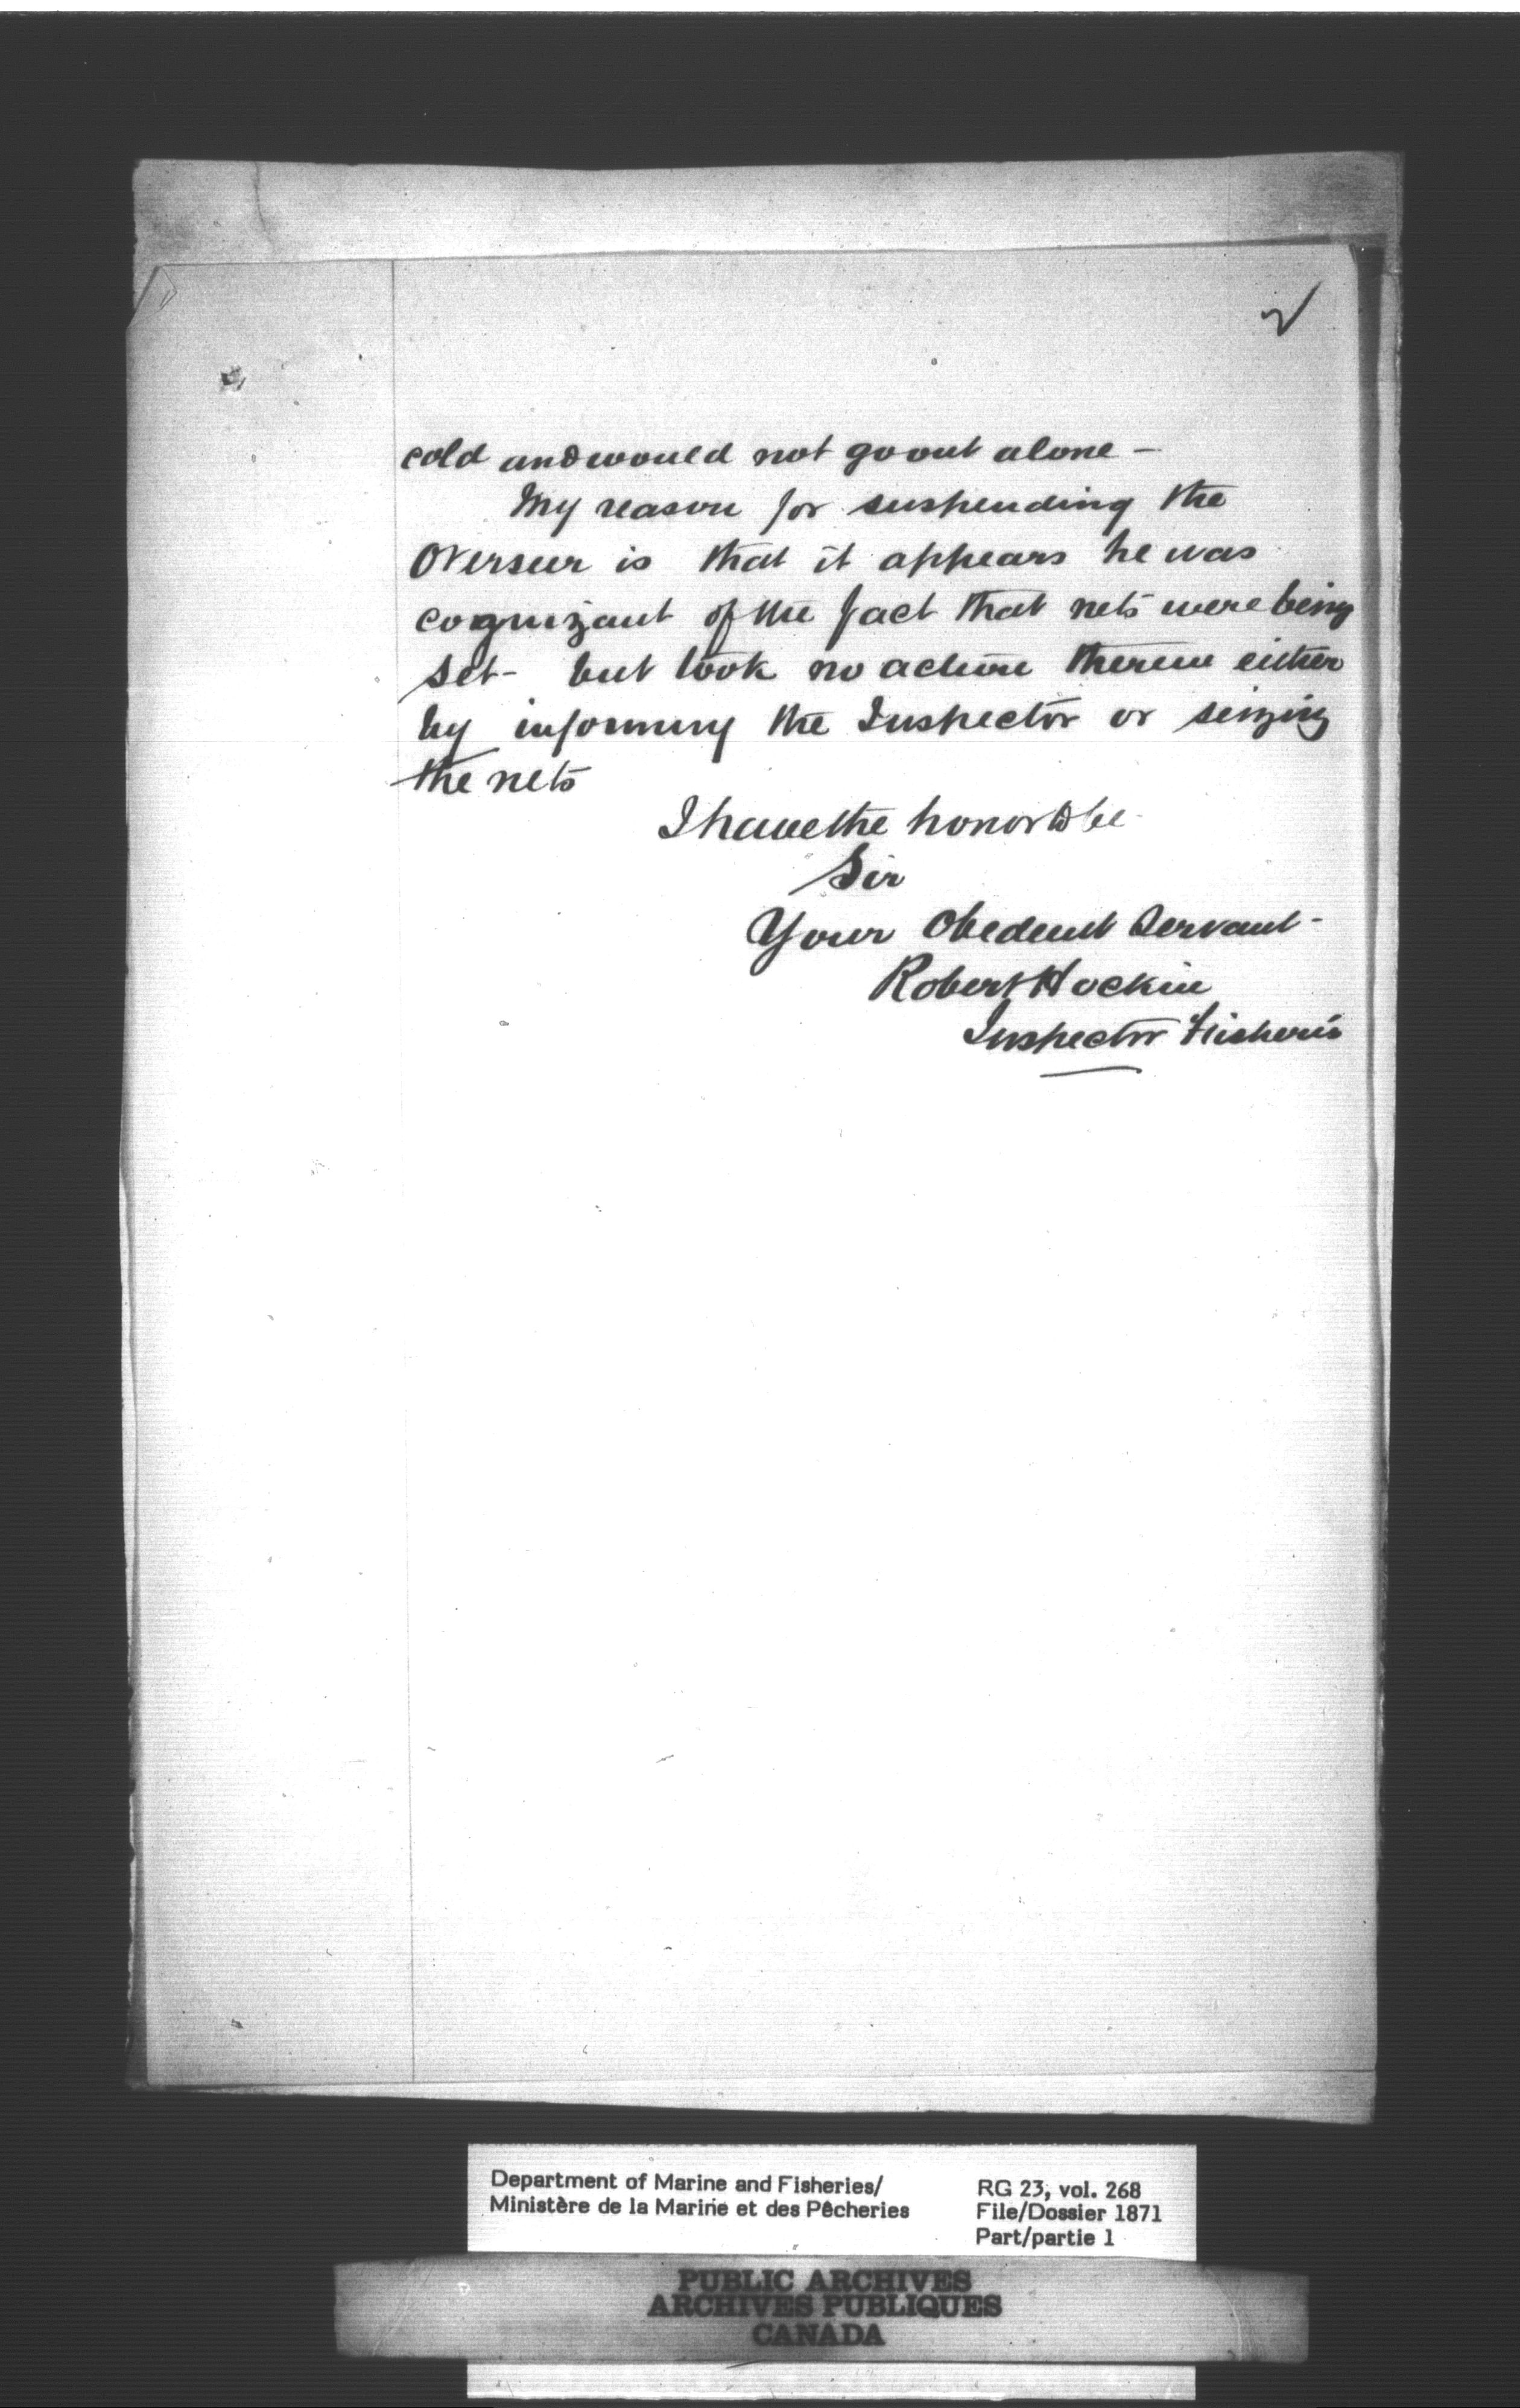 2
cold and would not go out alone -
My reason for suspending the
Overseer is that it appears he was
cognizant of the fact that nets were being
set - but took no action therein either
by informing the Inspector or seizing
the nets
I have the honor to be
Sir
Your Obedient Servant -
Robert Hockin
Inspector Fisheries
Department of Marine and Fisheries/
Ministère de la Marine et des Pêcheries
RG 23, vol. 268
File/Dossier 1871
Part/partie 1
PUBLIC ARCHIVES
ARCHIVES PUBLIQUES
CANADA